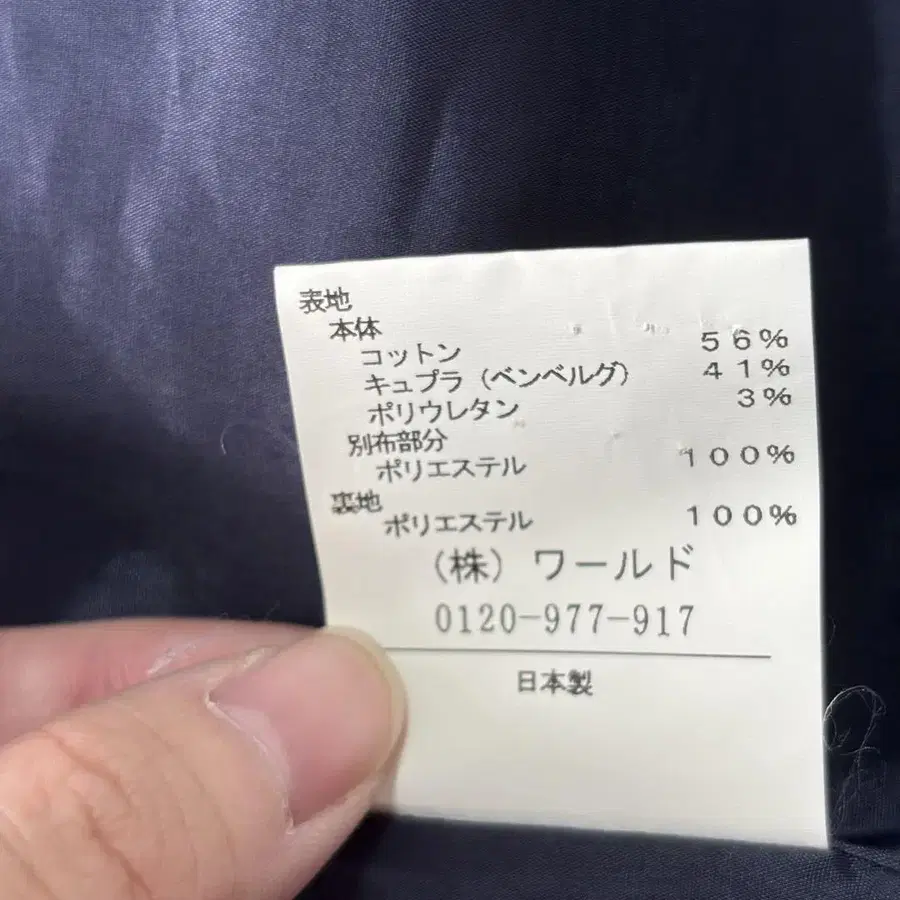 表地
本体
コットン 56%
キュプラ（ベンベルグ） 41%
ポリウレタン 3%
別布部分
ポリエステル 100%
裏地
ポリエステル 100%
（株）ワールド
0120-977-917
日本製